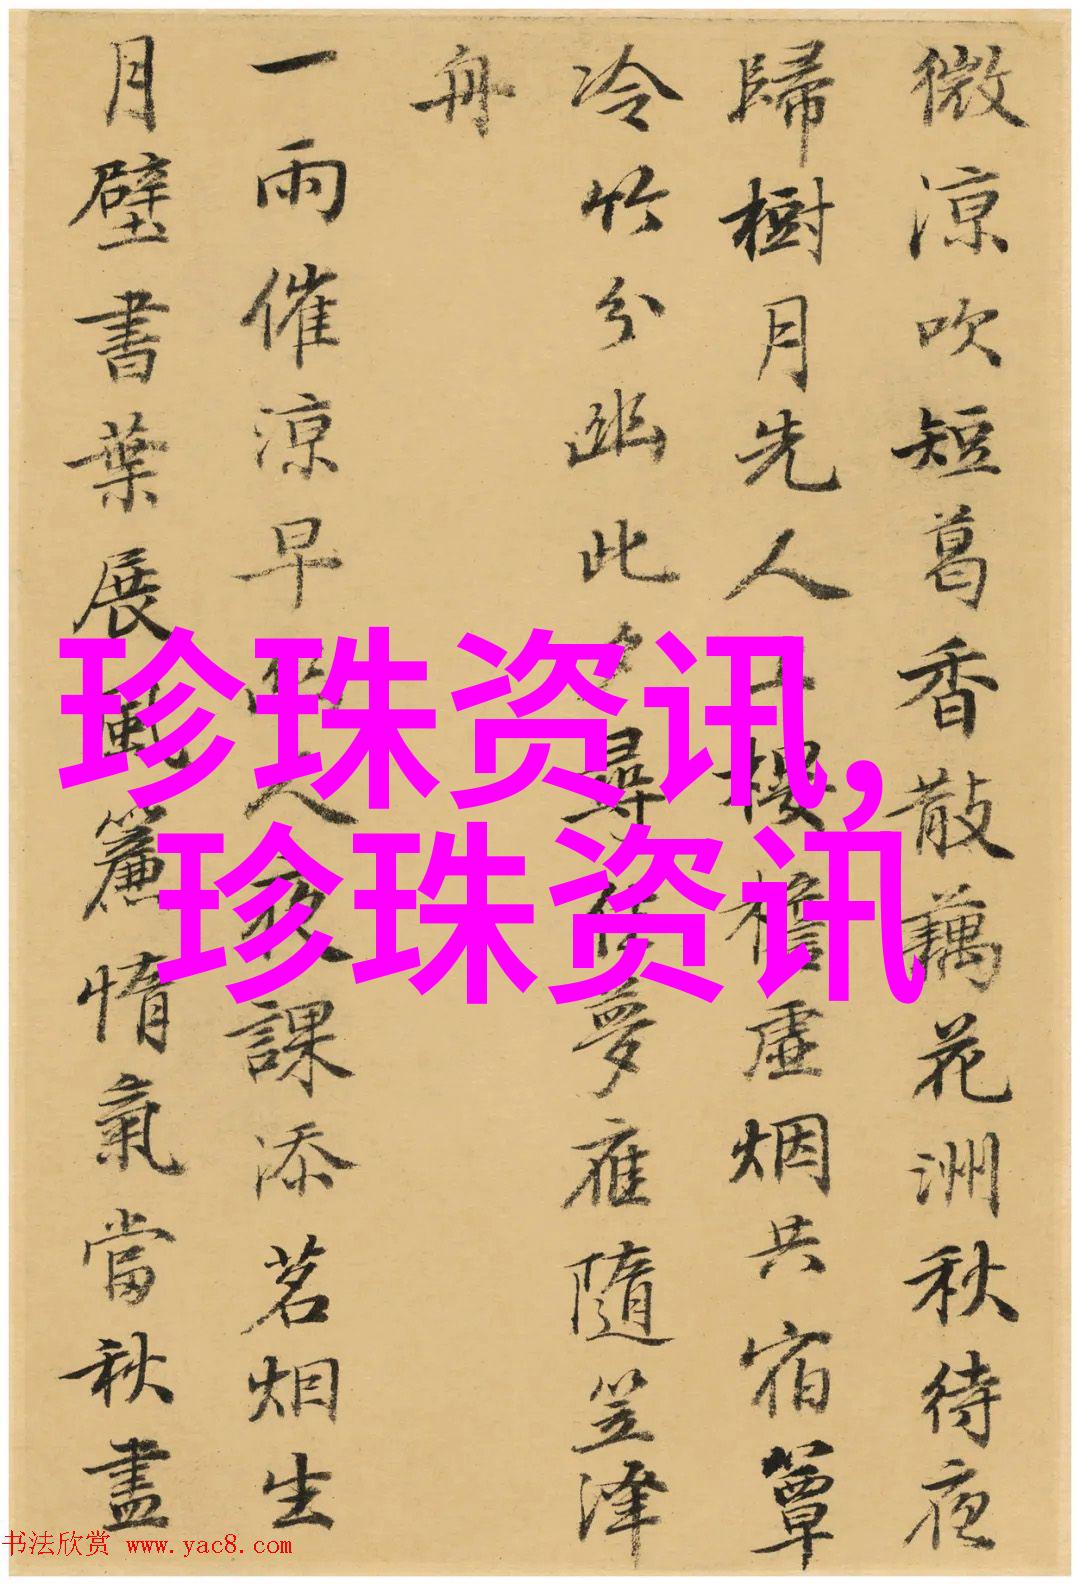 微涼吹短葛香散藕花洲秋待夜
歸樹月先人上樓檐虛烟共宿簟
冷竹分幽此夕尋佳夢隨笠澤
舟
一雨催涼早人夜課添茗烟生
月壁書葉展風簾惰氣當秋盡
珍珠资讯,
珍珠资讯
书法欣赏 www.yac8.com